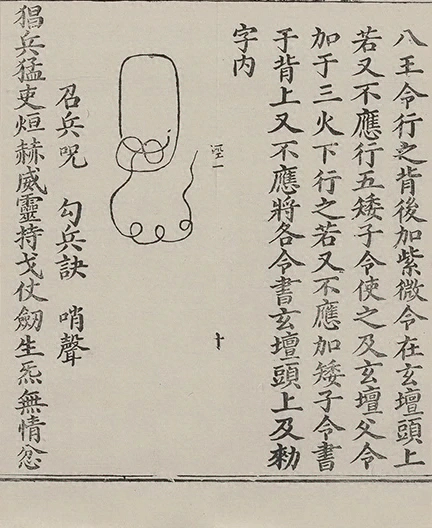 八王令行之背後加紫微令在玄壇頭上
若又不應行五矮子令使之及玄壇父令
加于三火下行之若又不應加矮子令書
于背上又不應將各令書玄壇頭上及勑
字内
涇一
十
召兵呪　勾兵訣　哨聲
猖兵猛吏烜赫威靈持戈仗劒生炁無情忿